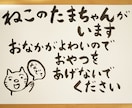 ねこのたまちゃんが
います
おなかがよわいので
おやつを
あげないで
ください